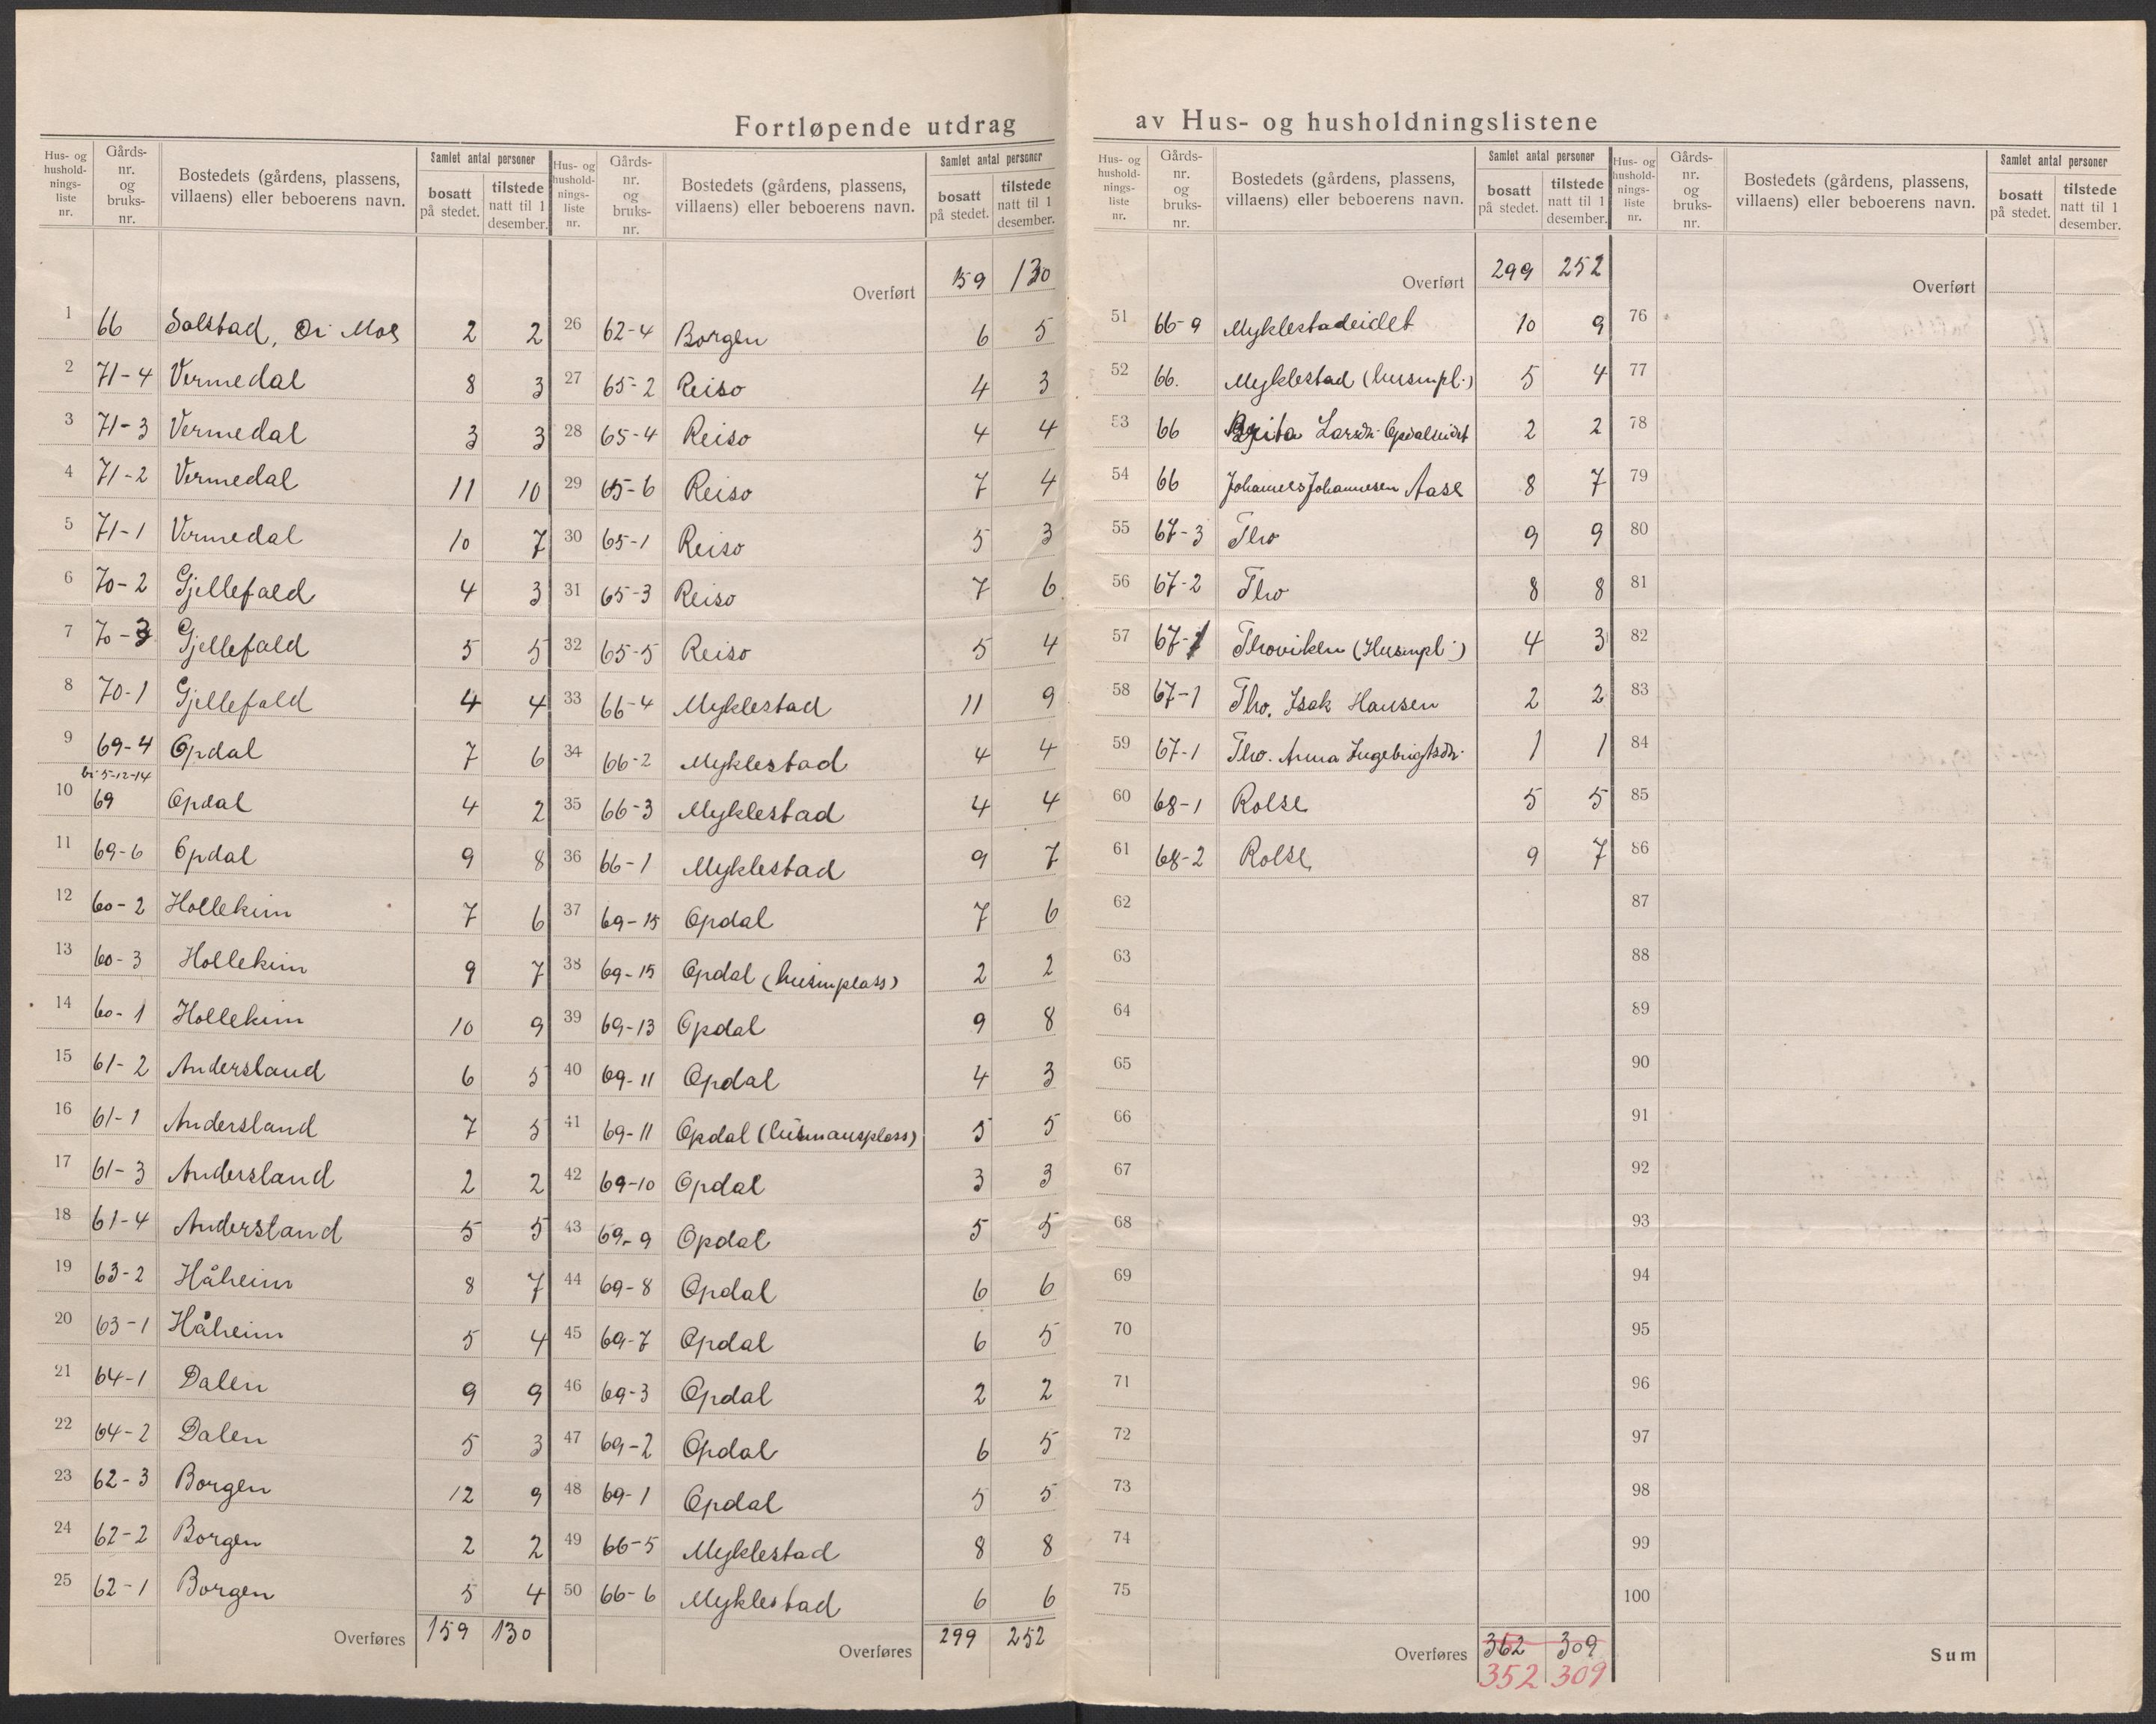 Fortløpende utdrag av Hus- og husholdningslistene
Hus- og husholdnings- liste nr. | Gårds- nr. og bruks- nr. | Bostedets (gårdens, plassens, villaens) eller beboerens navn. | Samlet antal personer | bosatt på stedet. | tilstede natt til 1 desember.
1 66 Solstad, 2 2
2 71-4 Vermedal 8 3
3 71-3 Vermedal 3 3
4 71-2 Vermedal 11 10
5 71-1 Vermedal 10 7
6 70-2 Gjellefald 4 3
7 70-3 Gjellefald 5 5
8 70-1 Gjellefald 4 4
9 69-4 Opdal 7 6
10 69 5-12-14 Opdal 4 2
11 69-6 Opdal 9 8
12 60-2 Hollekim 7 6
13 60-3 Hollekim 9 7
14 60-1 Hollekim 10 9
15 61-2 Andersland 6 5
16 61-1 Andersland 7 5
17 61-3 Andersland 2 2
18 61-4 Andersland 5 5
19 63-2 Håheim 8 7
20 63-1 Håheim 5 4
21 64-1 Dalen 9 9
22 64-2 Dalen 5 3
23 62-3 Borgen 12 9
24 62-2 Borgen 2 2
25 62-1 Borgen 5 4
Overføres 159 130
Hus- og husholdnings- liste nr. | Gårds- nr. og bruks- nr. | Bostedets (gårdens, plassens, villaens) eller beboerens navn. | Samlet antal personer | bosatt på stedet. | tilstede natt til 1 desember.
Overført 159 130
26 62-4 Borgen 6 5
27 65-2 Reiso 4 3
28 65-4 Reiso 4 4
29 65-6 Reiso 7 4
30 65-1 Reiso 5 3
31 65-3 Reiso 7 6
32 65-5 Reiso 5 4
33 66-4 Myklestad 11 9
34 66-2 Myklestad 4 4
35 66-3 Myklestad 4 4
36 66-1 Myklestad 9 7
37 69-15 Opdal 7 6
38 69-15 Opdal (husmplass) 2 2
39 69-13 Opdal 9 8
40 69-11 Opdal 4 3
41 69-11 Opdal (husmansplass) 5 5
42 69-10 Opdal 3 3
43 69-9 Opdal 5 5
44 69-8 Opdal 6 6
45 69-7 Opdal 6 5
46 69-3 Opdal 2 2
47 69-2 Opdal 6 5
48 69-1 Opdal 5 5
49 66-5 Myklestad 8 8
50 66-6 Myklestad 6 6
Overføres 299 252
Hus- og husholdnings- liste nr. | Gårds- nr. og bruks- nr. | Bostedets (gårdens, plassens, villaens) eller beboerens navn. | Samlet antal personer | bosatt på stedet. | tilstede natt til 1 desember.
Overført 299 252
51 66-9 Myklestadeidet 10 9
52 66. Myklestad (husmpl.) 5 4
53 66 Brita Larsdr. Opdalseidet 2 2
54 66 Johannes Johannesen Aase 8 7
55 67-3 Tho 9 9
56 67-2 Tho 8 8
57 67-1 Thoviken (Husmpl.) 4 3
58 67-1 Tho. Isak Hansen 2 2
59 67-1 Tho. Anna Ingebrigtsdr. 1 1
60 68-1 Rolse 5 5
61 68-2 Rolse 9 7
62
63
64
65
66
67
68
69
70
71
72
73
74
75
Overføres 362 309
352 309
Hus- og husholdnings- liste nr. | Gårds- nr. og bruks- nr. | Bostedets (gårdens, plassens, villaens) eller beboerens navn. | Samlet antal personer | bosatt på stedet. | tilstede natt til 1 desember.
Overført
76
77
78
79
80
81
82
83
84
85
86
87
88
89
90
91
92
93
94
95
96
97
98
99
100
Sum